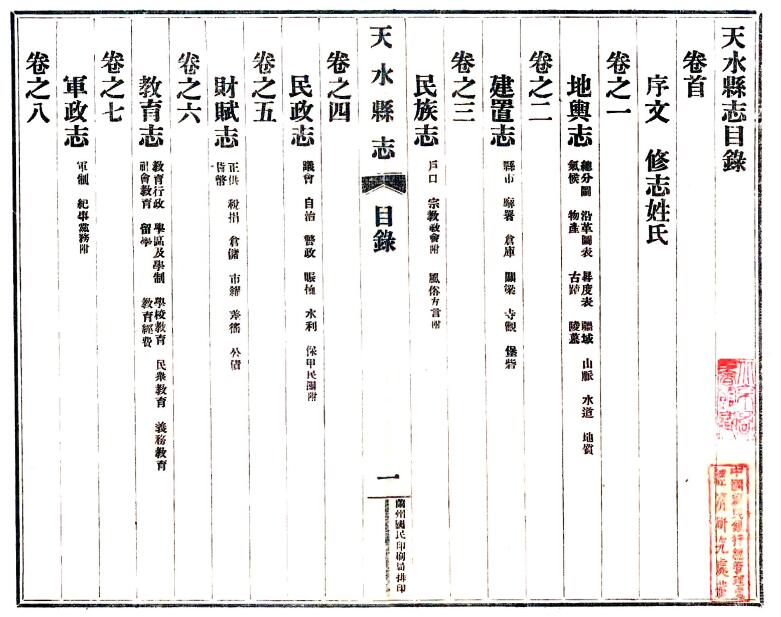 天水縣志目錄
卷首
序文 修志姓氏
卷之一
地輿志 總分圖 沿革圖表 晷度表 疆域 山脈 水道 地質
氣候 物產 古蹟 陵墓
卷之二
建置志 縣市 廨署 倉庫 關梁 寺觀 堡砦
卷之三
民族志 戶口 宗教教會附 風俗方言附
天水縣志 目錄
一
蘭州國民印刷局排印
卷之四
民政志 議會 自治 警政 賑恤 水利 保甲民團附
卷之五
財賦志 正供 稅捐 倉儲 市糶 公債
貨幣
卷之六
教育志 教育行政 學區及學制 學校教育 民衆教育 義務教育
社會教育 留學 教育經費
卷之七
軍政志 軍制 紀事黨務附
卷之八